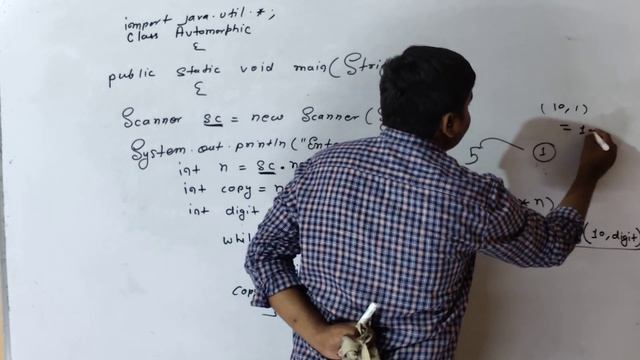 import java.util.*;
Class Automorphic
{
public static void main(Stri
{
Scanner sc = new Scanner(S
System.out.println("Ente
int n = sc.n
int copy = n
int digit
whil
cop
(10,1)
= 1
1
* n)
(10,digit)